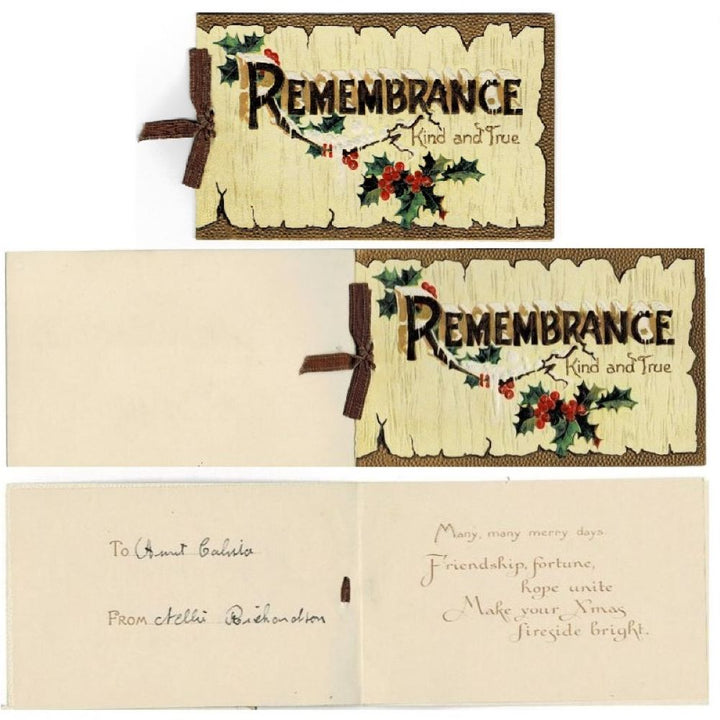 REMEMBRANCE
Kind and True
REMEMBRANCE
Kind and True
To Aunt
FROM Nellie Richardson
Many, many merry days
Friendship, fortune,
hope unite
Make your Xmas
fireside bright.